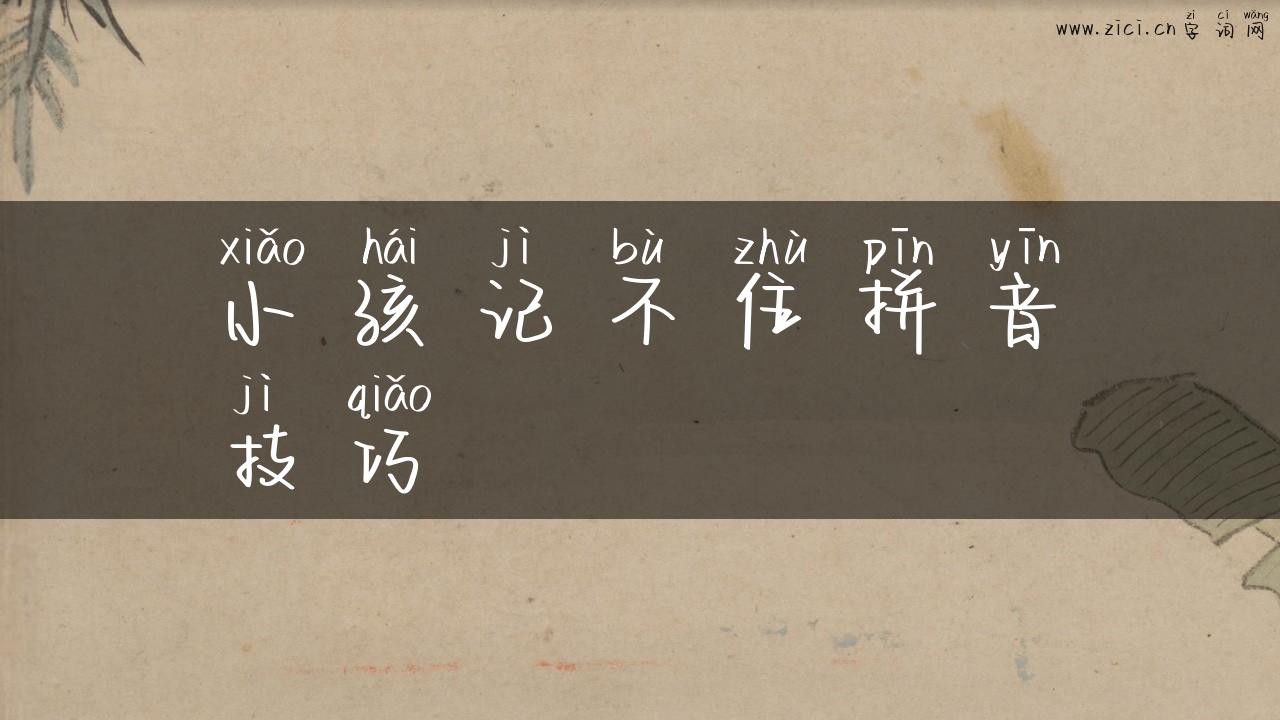 zì cí wǎng
www.zici.cn 字词网
xiǎo hái jì bù zhù pīn yīn
小孩记不住拼音
jì qiǎo
技巧